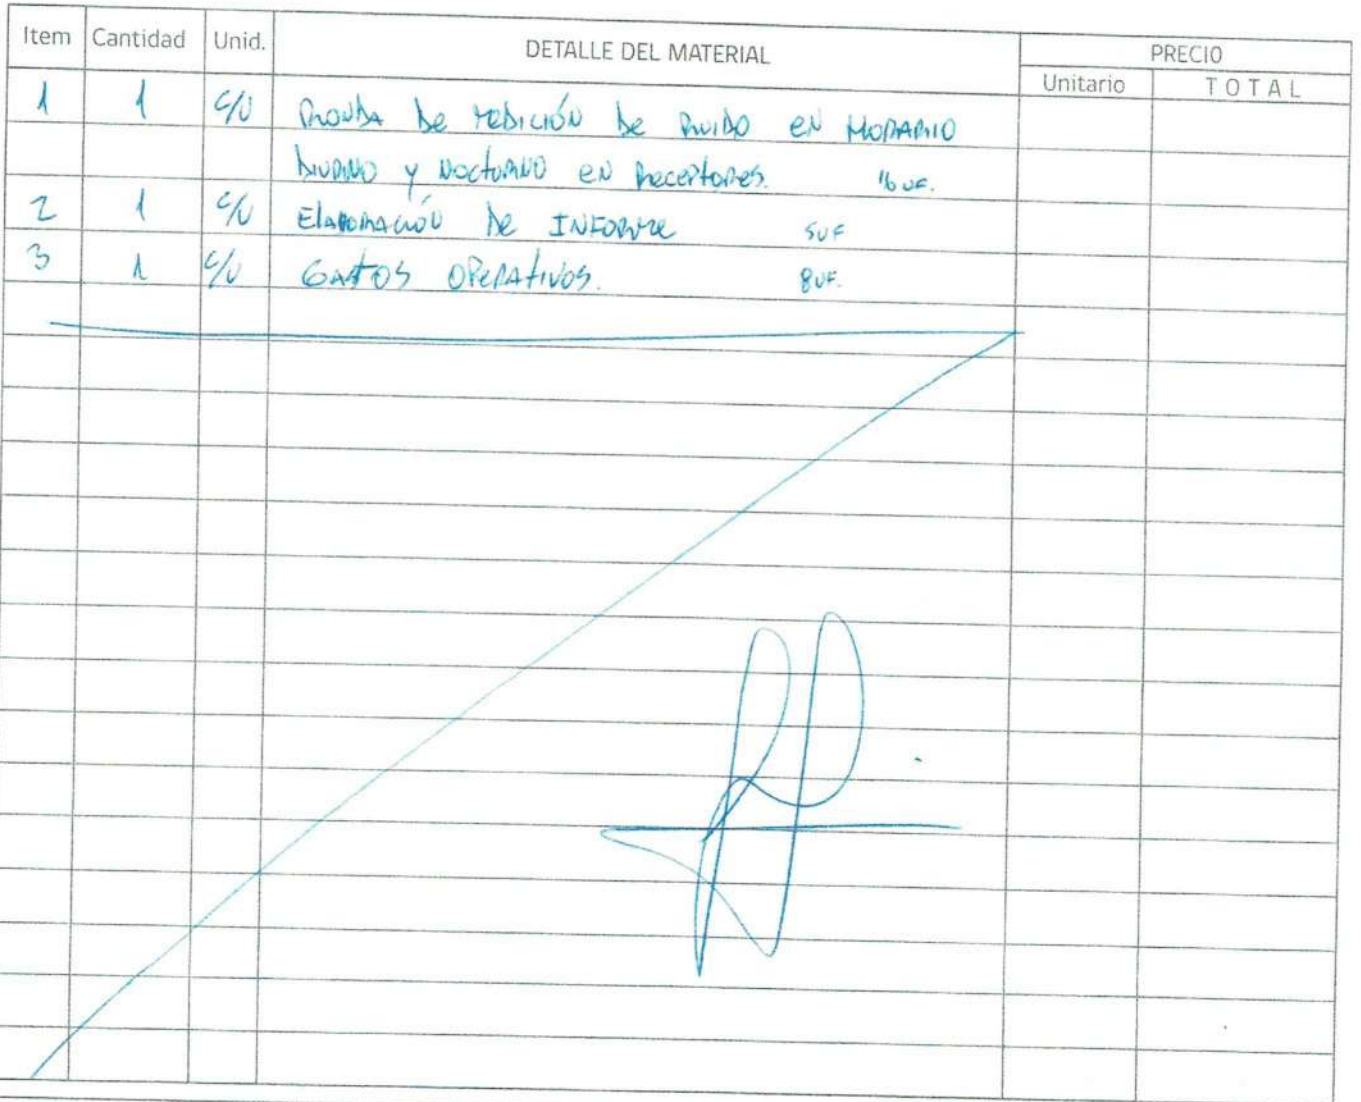 Item Cantidad Unid. DETALLE DEL MATERIAL PRECIO
Unitario TOTAL
1 1 c/u RONDA De MEDICIÓN De RUIDO eN HORARIO
DIURNO y NocturNO eN Receptores. 16 UF.
2 1 c/u ElaborACIÓN De INFORME 5UF
3 1 c/u GAstOS OPeRAtIVOS. 8UF.